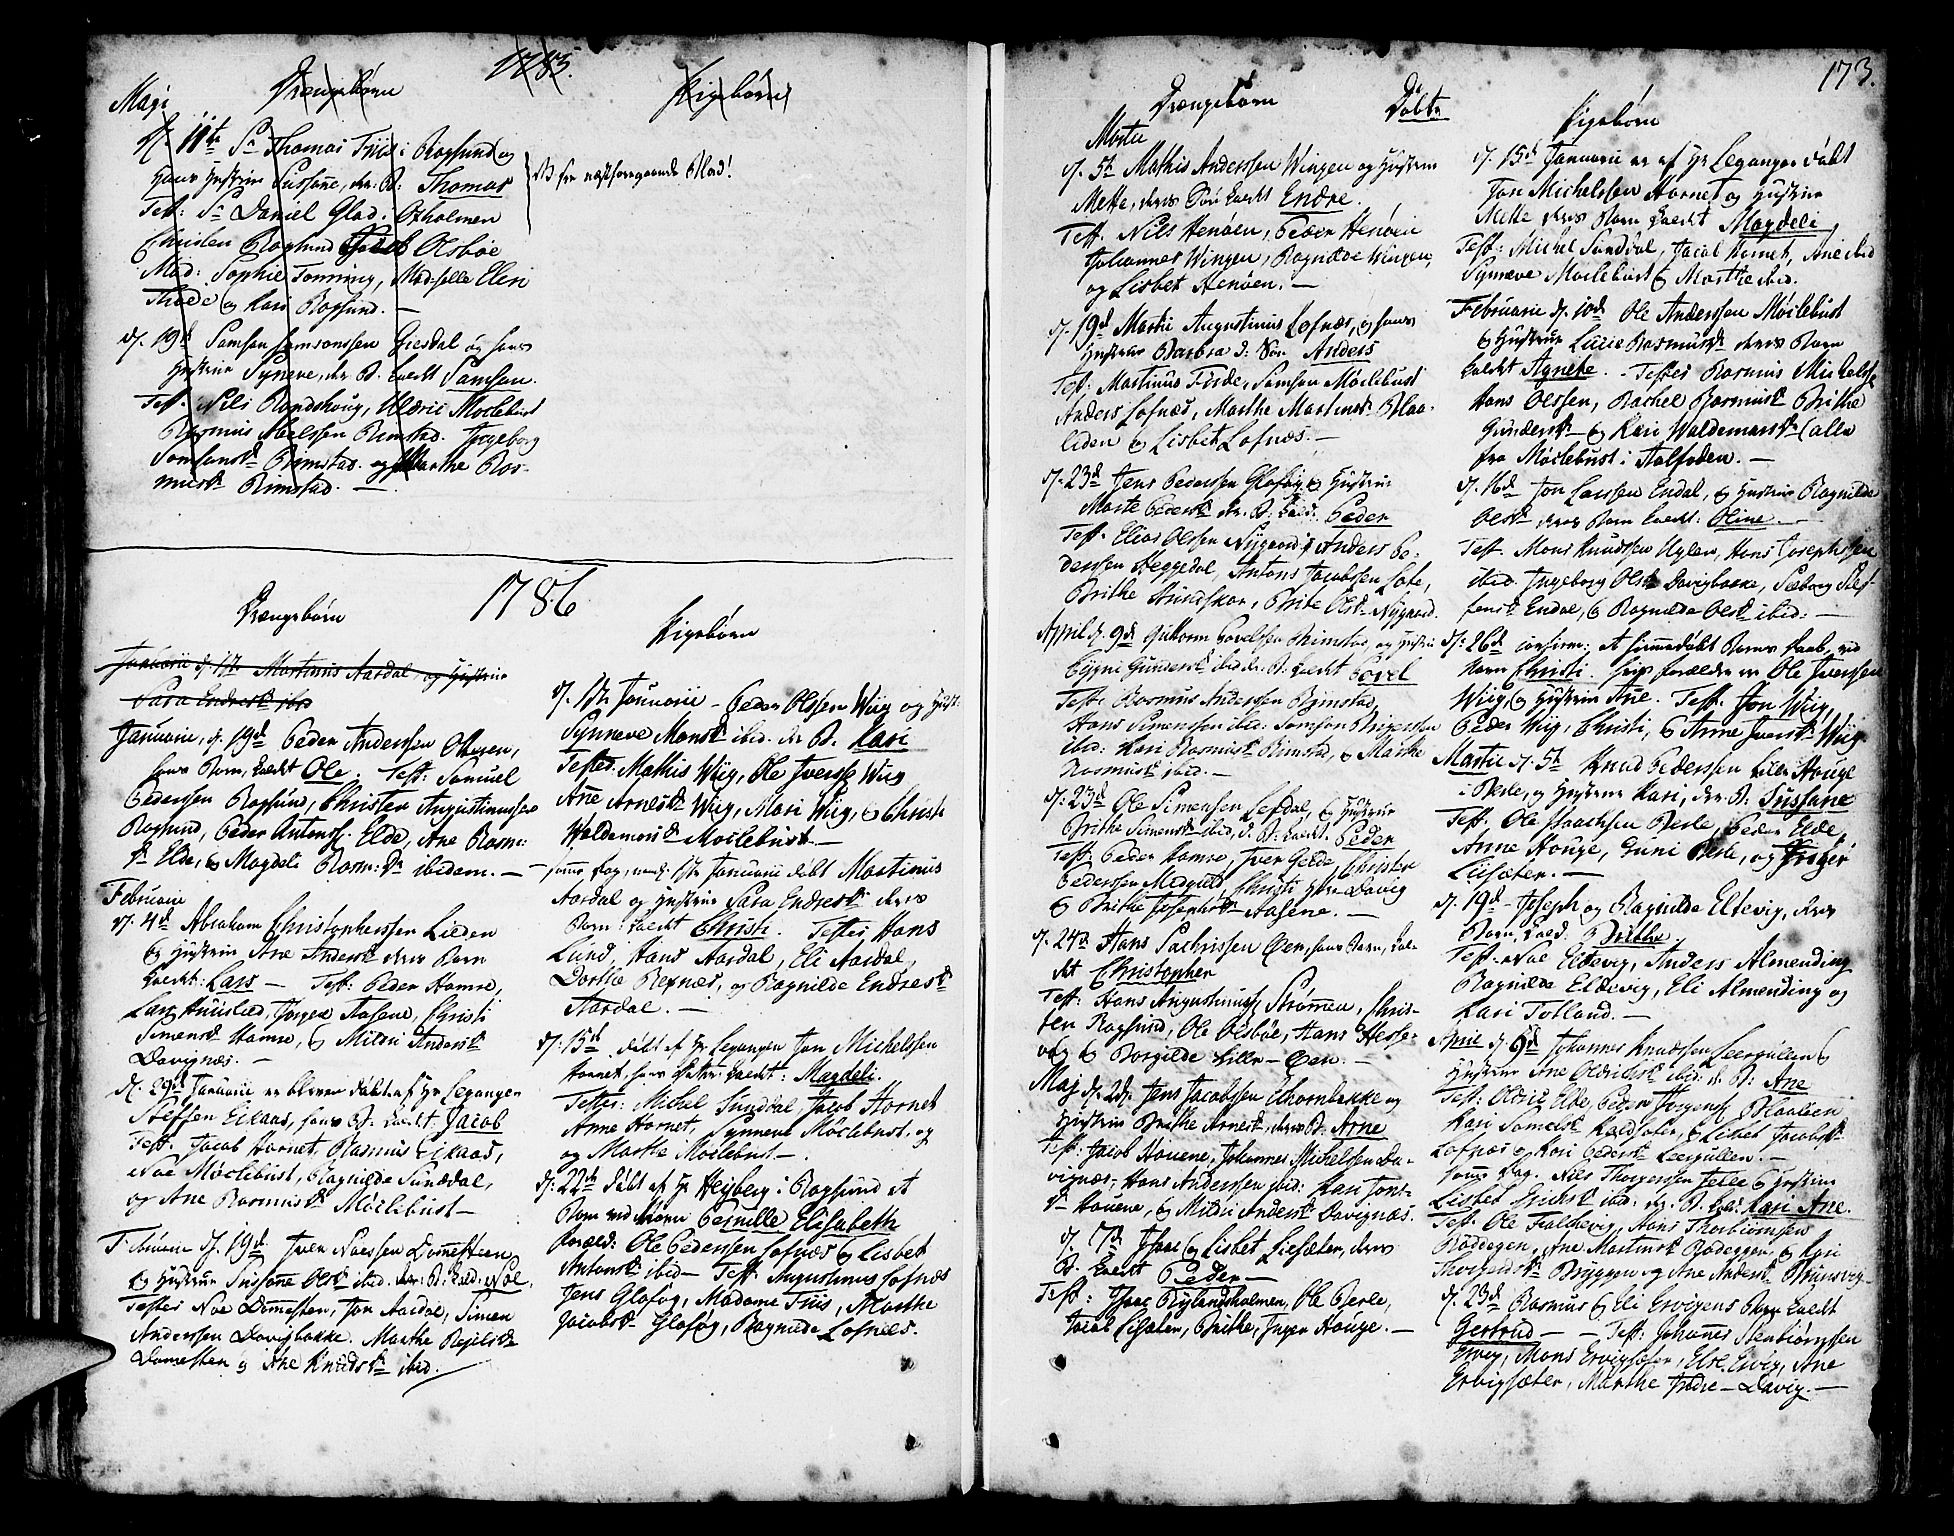 1785.
Maji
Drængebørn
Pigebørn
d. 11te Sr Thomas Friis i Rogsund og
hans Hustrue Sussane, der. B: Thomas
Test: Sr Daniel Glad. Oxholmen
Christen Rogsund Jacob Olsbøe
Mad: Sophie Tonning, Madselle Elen
Thode og Kari Rogsund. —
NB see næstforegaaende Blad!
d. 19d Samson Samsonssen Giesdal og hans
Hustrue Syneve, der B. kaldt Samson.
Test. Nils Randshoug, Uldric Moclebust
Rasmus Abelssen Rimstad. Ingeborg
Samsonsdr Rimstad. og Marthe Ras-
musdr Rimstad. —
1786
Drængebørn
Januarii d. 1te Martinus Aardal, og Hustrue
Sara Endresdr ibid
Januarii, d. 19d Peder Anderssen
hans Barn, kaldt Ole. Test: Samuel
Pederssen Rogsund, Christen Augustinussen
Rogsund, Peder Antonss. Elde, Ane Rasm:
dr Elde, og Magdeli Rasm: dr ibidem. —
Februarii
d. 4d Abraham Christopherssen Lieden
og Hustrue Ane Andersdr deres Barn
kaldt: Lars — Test: Peder Hamre,
Lars Huuslied, Jørgen Aasene, Christi
Simensdr Hamre, og Mildri Andersdr
Davignæs. —
d. 29d Januarii er bleven døbt af Hr Leganger
Steffen Eikaas, hans B: kaldt Jacob
Test: Jacob Hornet, Rasmus Eikaas,
Noe Møclebust, Ragnilde Sundal,
og Ane Rasmusdr Møclebust —
Februarii d. 19d Iver Noessen Domesteen
og Hustrue Sussane Olsdr ibid. der. B: kald: Noe.
Testes Noe Domesten, Jon Aardal, Simen
Anderssen Davigbakke. Marthe
Domesten og Ane Knudsdr ibid.
Pigebørn
d. 1te Januarii — Peder Olssen Wiig og Hust:
Synneve Monsdr ibid. der B. Kari
Testes: Mathis Wiig, Ole Iverss: Wiig
Ane Arnesdr Wiig, Mari Wiig, og Christi
Waldemarsdr Moclebust. —
samme Dag, nemlig 1te Januarii døbt Martinus
Aardal og Hustrue Sara Endresdr deres
Barn: kaldt Christi. Testes Hans
Lund, Hans Aardal, Eli Aardal,
Dorthe Refnæs, og Ragnilde Endresdr
Aardal. —
d. 15d døbt af Hr Leganger Jon Michelssen
Hornet, hans Datter kaldt: Magdeli.
Testes: Michel Sunddal, Jacob Hornet
Anne Hornet, Synneve Møclebust, og
og Marthe Møclebust —
d. 22de døbt af Hr Heiberg i Rogsund et
Barn ved Navn Pernille Elisabeth
Foræld: Ole Pederssen Lofnæs og Lisbet
Antonsdr ibid — Test: Augustinus Lofnæs
Jens Gloføg, Madame Friis, Marthe
Jacobsdr Gloføg, Ragnilde Lofnæs.
173.
Drængebørn
Døbte
Pigebørn
Martii
d. 5te Mathis Anderssen Wingen og Hustrue
Mette, deres Søn kaldt Endre.
Test. Nils Henøen, Peder Henøen
Johannes Wingen, Ragnilde Wingen,
og Lisbet Henøen. —
d. 19d Martii Augustinus Lofnæs, og hans
Hustrue Barbra d: Søn Anders
Test: Martinus Förde, Samson Møclebust
Anders Lofnæs, Marthe Martinusdr Blaa-
lieden og Lisbet Lofnæs. —
d. 23d Jens Pederssen Gloføg, og Hustrue
Marte Pedersdr der. B: kald: Peder
Test. Elias Olssen Nygaard, Anders Pe-
derssen Heggedal, Antons Jacobssen Lote,
Brithe Hundskar, Brite Olsdr Nygaard.
April d. 9d Guttorm Povelssen Rimstad, og Hustrue
Gundersdr ibid der. B. kaldt Povel
Test: Rasmus Anderssen Rimstad
Hans Simenssen ibid: Samson
ibid: Kari Rasmusdr Rimstad, og Marthe
Rasmusdr ibid. —
d. 23d Ole Simenssen Lefdal, og Hustrue
Brithe Simensdr ibid, d. B. kaldt. Peder
Test: Peder Hamre, Iver Gelde, Christen
Pederssen Maagaard, Christi Davig
og Brithe Josephsdr Aasene. —
d. 24d Hans Sachrissen Øen, hans Barn, kal-
det Christopher
Test: Hans Augustinuss. Strömen, Chris-
ten Rogsund, Ole Olsböe, Hans Hesse-
og Borgilde Lille-Øen. —
Maj d. 2d. Jens Jacobssen Ehornbakke og
Hustrue Brithe Arnesdr, deres B. Arne
Test. Jacob Houene, Johannes Michelssen Da-
vignæs. Hans Anderssen ibid: Kari Jons-
dr Houene, og Mildri Andersdr Davignæs.
d. 7d Isaac og Lisbet Liesæter, deres
B. kaldt Peder —
Test: Isaac Rylandsholmen, Ole Berle,
Jacob Liesæter, Brithe, Inger Houge. —
d. 15d Januarii er af Hr Leganger døbt
Jon Michelssen Hornet og Hustrue
Mette deres Barn kaldt Magdeli
Test: Michel Sunddal, Jacob Hornet, Ane ibid
Synneve Moclebust og Marthe ibid.
Februarii d. 10d Ole Anderssen Møclebust
og Hustrue Lucie Rasmusdr deres Barn
kaldet Agnete. — Testes Rasmus Michelss.
Hans Olssen, Rachel Rasmusdr Brithe
Gundersdr — og Kari Waldemarsdr (alle
fra Møclebust i Aalfoden. —
d. 16d Jon Larssen Endal, og Hustrue Ragnilde
Olsdr deres Barn kaldt: Oline. —
Test. Mons Knudssen Uglen, Hans Josephssen
ibid. Ingeborg Olsdr Davigbakke, Sæborg Stef-
fensdr Endal, og Ragnilde Olsdr ibid: —
d. 26d confirm: et hiemmedøbt Barns Daab, ved
Navn Christi. Hvis Forældre er Ole Iverssen
Wiig, og Hustrue Ane. Test. Jon Wiig,
Peder Wiig, Christi, og Anne Iversdr Wiig.
Martii d. 5te Knud Pederssen Lille Houge
i Berle, og Hustrue Kari, der. B: Sussane
Test. Ole Isaachsen Berle, Peder Elde,
Anne Houge, Guni Berle, og
Liesæter. —
d. 19d — Joseph og Ragnilde Eldevig, deres
Barn, kald. Brithe
Test. Noe Eldevig, Anders Almending
Ragnilde Eldevig, Eli Almending og
Kari Totland. —
Aprie d. 9d Johannes Knudssen Leergullen og
Hustrue Ane Oldrichsdr ibid: d. B: Ane
Test: Oldric Elde, Peder Jörgenss. Blaalien
Kari Samuelsdr Koldsæter, og Lisbet Jacobsdr
Lofnæs og Kari Pedersdr Leergullen. —
samme Dag. Nils Thorgerssen Tetle og Hustrue
Lisbet ibid: der. B. kald: Kari Ane.
Test. Ole Faldevig, Hans Thorbiørnssen
Røddegen, Ane Martinusdr Rødeggen, og Kari
Bryggen og Ane Andersdr
d. 23d Rasmus og Eli Ervigens Barn kaldt
Gertrud — — Test: Johannes Stenbiörnssen
Ervig, Mons Ervigsæter, Else Ervig, Ane
Ervigsæter, Marthe Indre-Davig. —